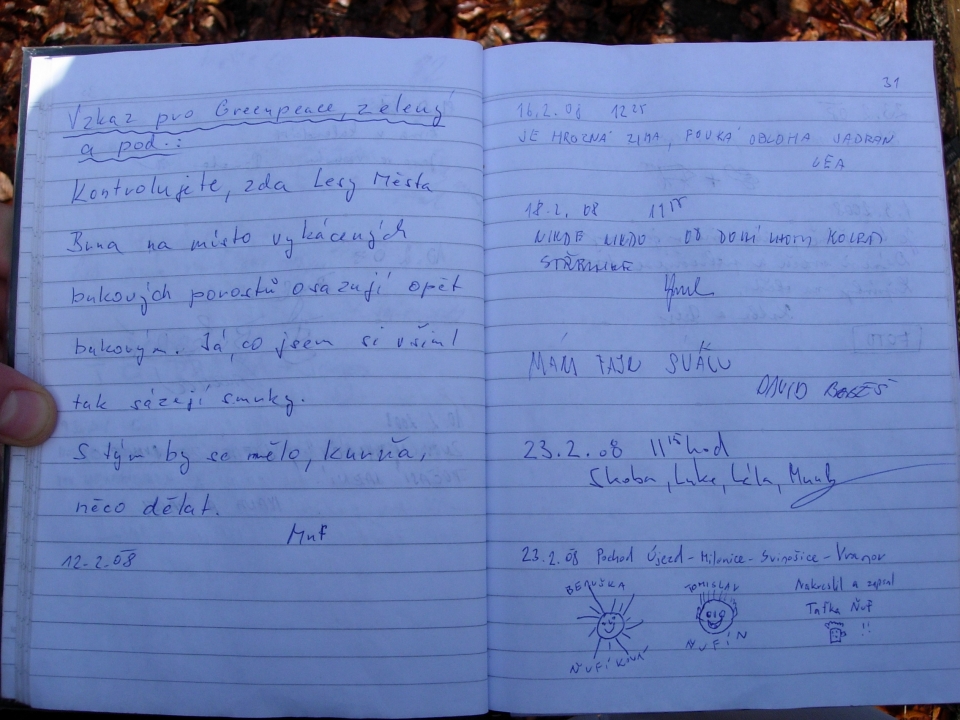 Vzkaz pro Greenpeace, zelený
a pod.:
Kontrolujete, zda Lesy Města
Brna na místo vykácených
bukových porostů osazují opět
bukovým. Já, co jsem si všiml
tak sázejí smrky.
S tým by se mělo, kurňa,
něco dělat.
Muf
12.2.08
31
16.2.08 12 25
JE HROZNÁ ZIMA, FOUKÁ OBLOHA JADRAN
LÉA
18.2.08 11
NIKDE NIKDO. OD DOLNÍ
MÁM FAJN SVÁČU
DAVID
23.2.08 11 15 hod
Skoba, Luke, Léla,
23.2.08 Pochod Újezd - Milonice - Svinošice - Vranov
BERUŠKA
ŇUFÍKOVÁ
TOMISLAV
ŇUFÍN
Nakreslil a zapsal
Taťka Ňuf
!!